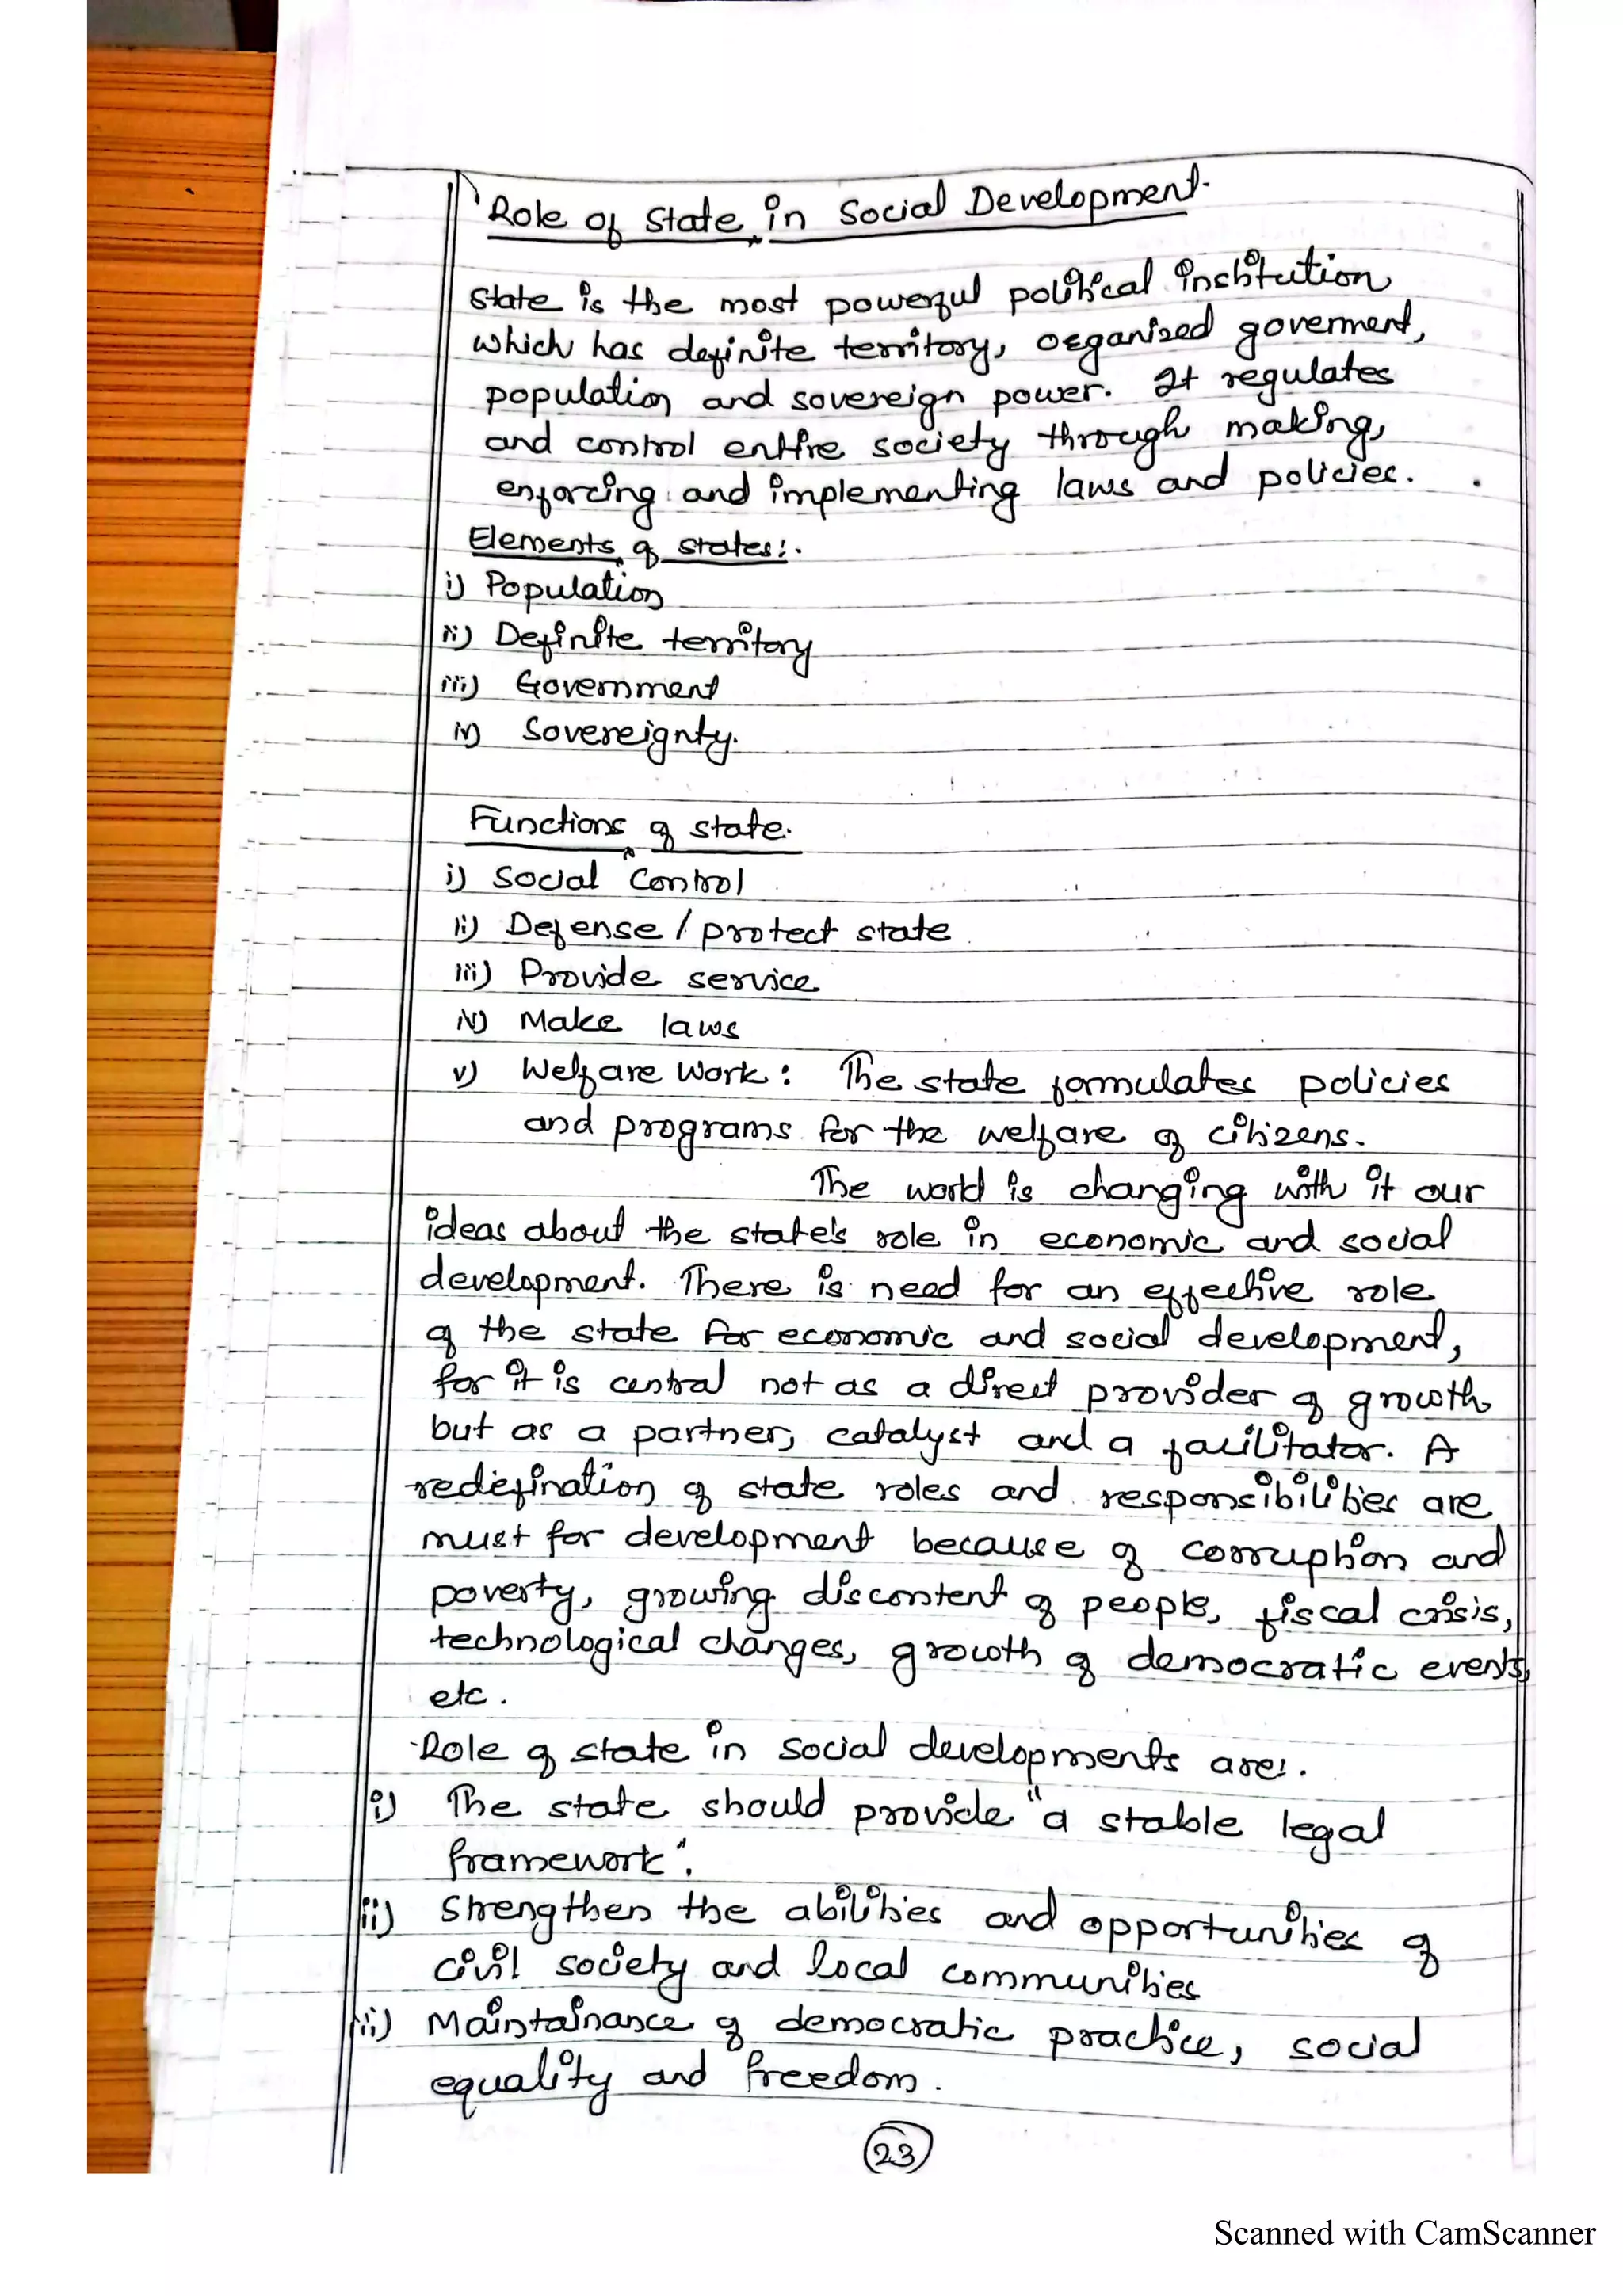 Role of State in Social Development.
State is the most powerful political institution
which has definite territory, organised goverment,
population and sovereign power. It regulates
and control entire society through making,
enforcing and implementing laws and policies.
Elements of states:.
i) Population
ii) Definite territory
iii) Government
iv) Sovereignty.
Functions of state.
i) Social Control
ii) Defense / protect state
iii) Provide service
iv) Make laws
v) Welfare Work: The state formulates policies
and programs for the welfare of citizens.
The world is changing with it our
ideas about the state's role in economic and social
development. There is need for an effective role
of the state for economic and social development,
for it is central not as a direct provider of growth
but as a partner, catalyst and a facilitator. A
redefination of state roles and responsibilities are
must for development because of corruption and
poverty, growing discontent of people, fiscal crisis,
technological changes, growth of democratic events,
etc.
Role of state in social developments are:.
i) The state should provide "a stable legal
framework".
ii) Strengthen the abilities and opportunities of
civil society and local communities
iii) Maintainance of democratic practice, social
equality and freedom.
23
Scanned with CamScanner